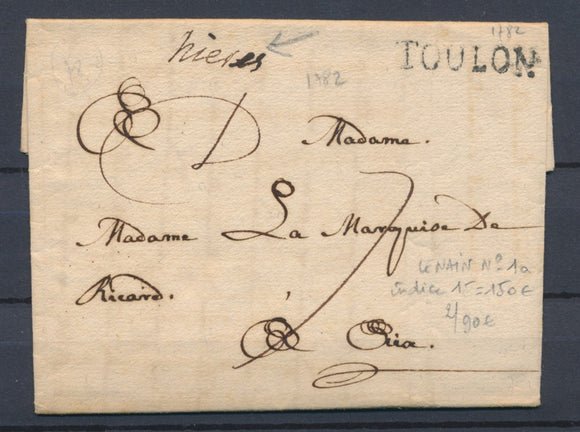 1782
hieres
TOULON
1782
A D Madame.
Madame La Marquise De
Ricard.
A Aix.
LENAIN N° 1a
indice 15 = 150€
90€